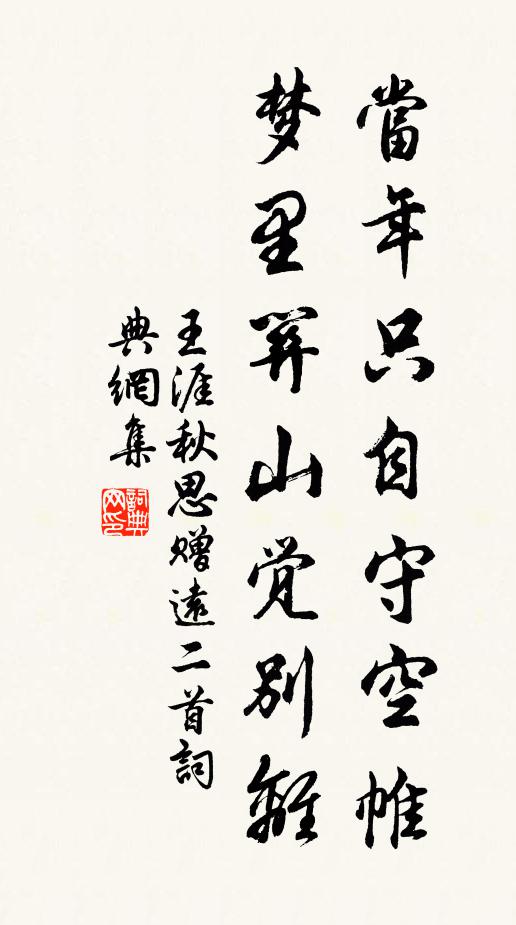 當年只自守空帷
梦里関山觉別離
王涯秋思赠遠二首詞
典網集
詞典网印